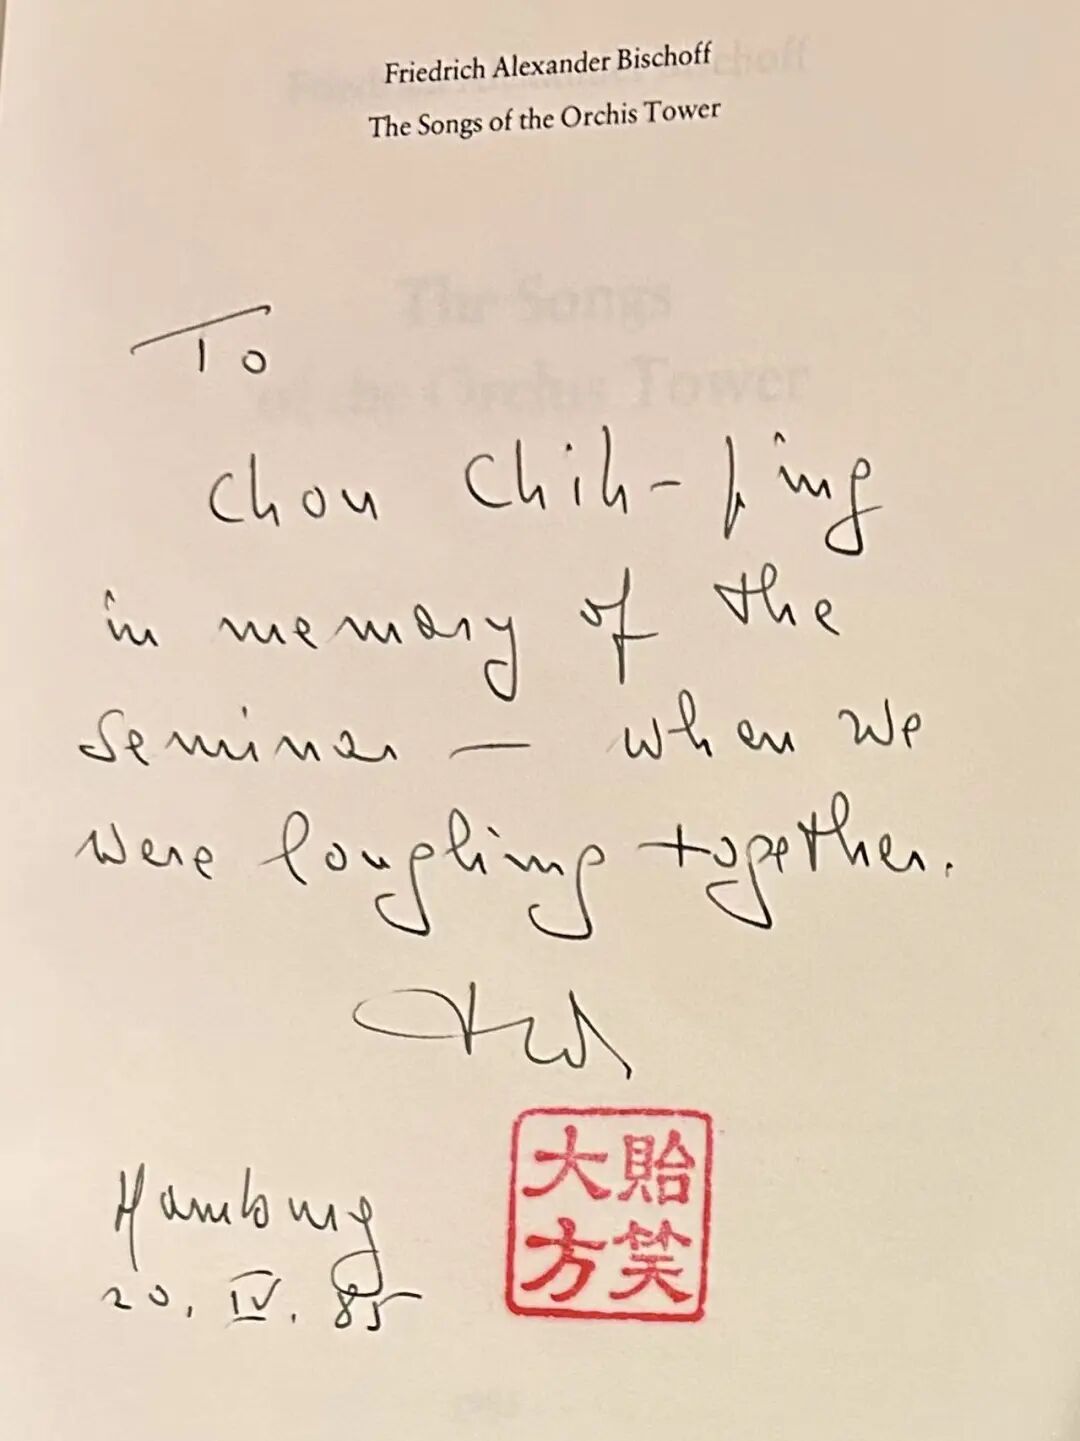 Friedrich Alexander Bischoff
The Songs of the Orchis Tower
The Songs
of the Orchis Tower
To
Chou Chih-p'ing
in memory of the
seminar — when we
were laughing together.
Hamburg
20. IV. 85
貽笑
大方